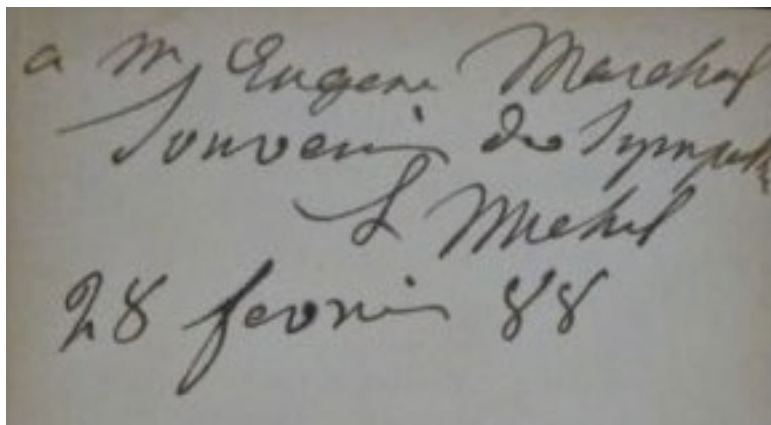 a M Eugene Marchal
Souvenir de Sympathie
L Michel
28 fevrier 88